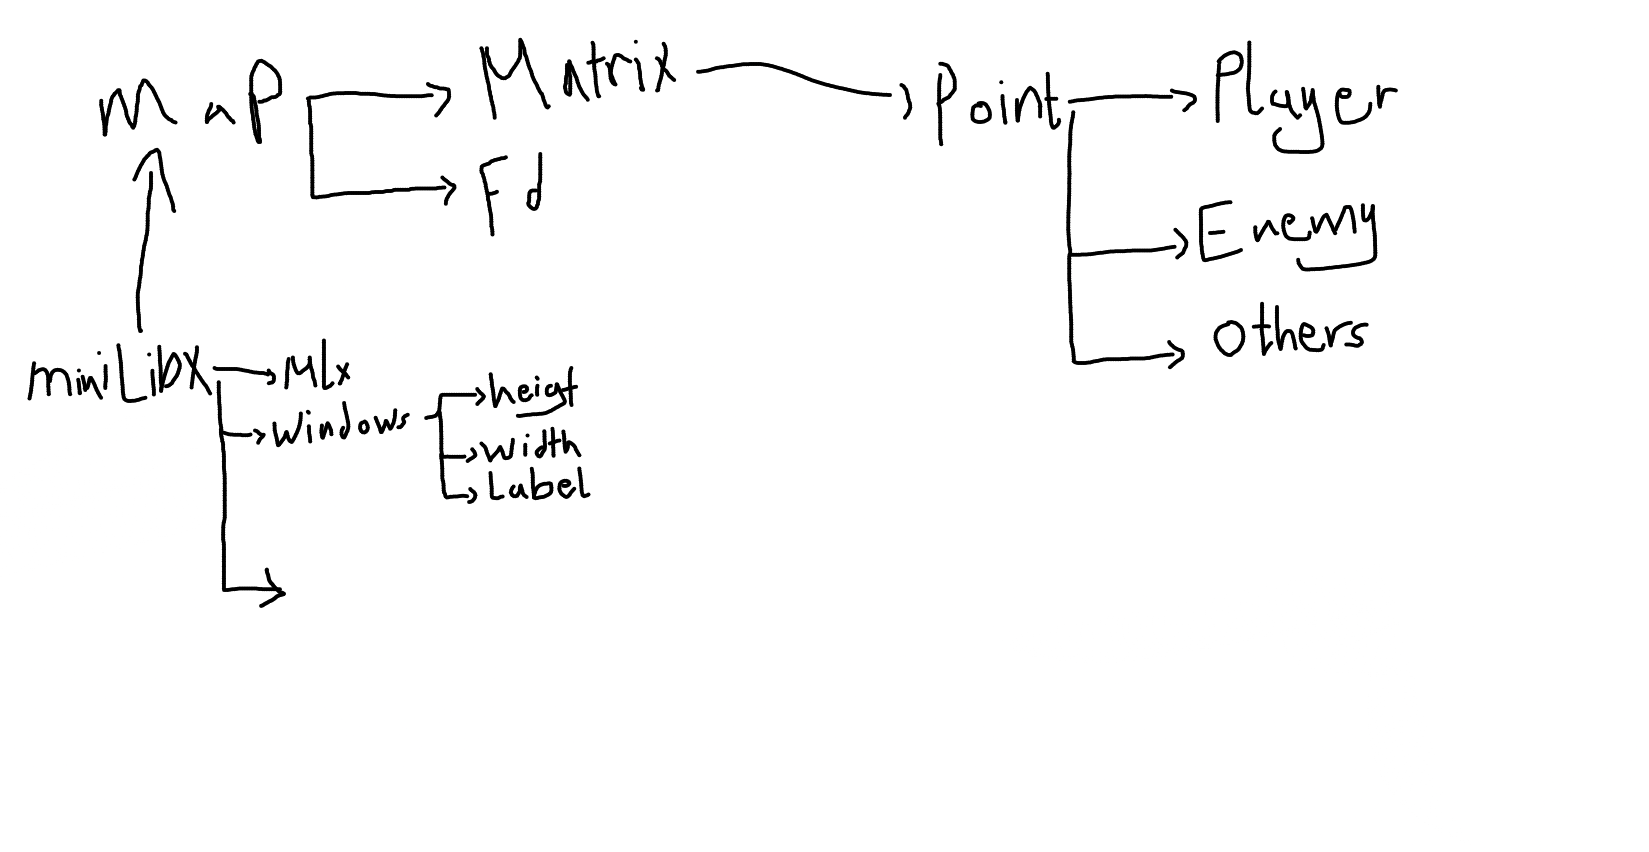 map
Matrix
Point
Player
Fd
Enemy
others
miniLibX
MLx
Windows
heigt
width
Label